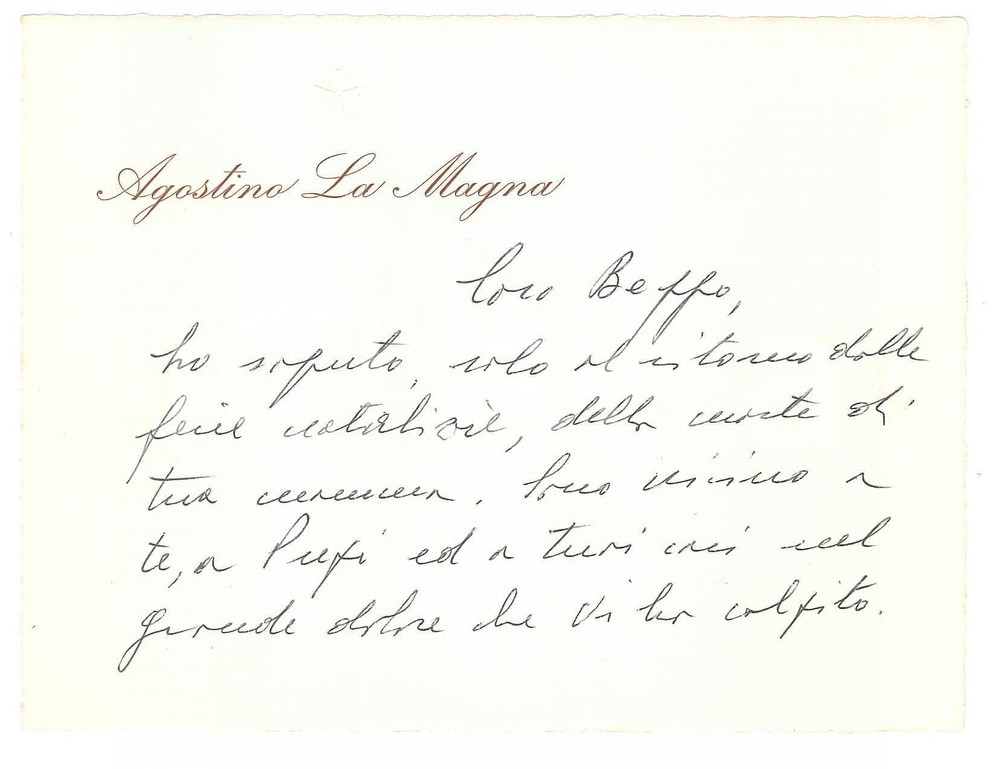 Agostino La Magna
Caro Beppo,
ho saputo, solo al ritorno dalle
ferie natalizie, della morte di
tua mamma. Sono vicino a
te, a Pupi ed a tuoi cari nel
grande dolore che vi ha colpito.